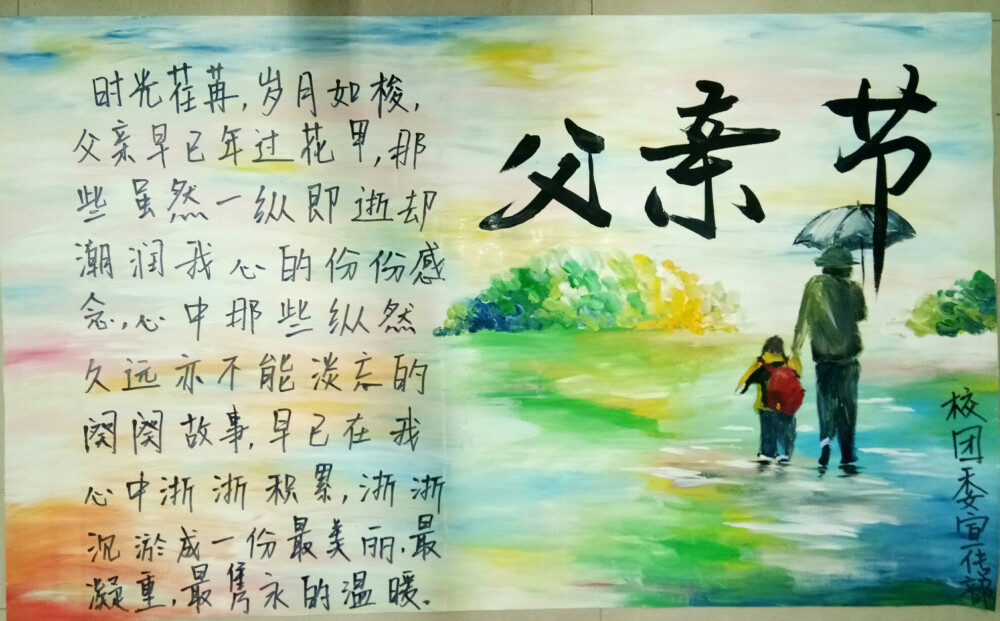 父亲节
时光荏苒,岁月如梭,
父亲早已年过花甲,那
些虽然一纵即逝却
潮润我心的份份感
念,心中那些纵然
久远亦不能淡忘的
阕阕故事,早已在我
心中浙浙积累,浙浙
沉淤成一份最美丽.最
凝重,最隽永的温暖.
校团委宣传部